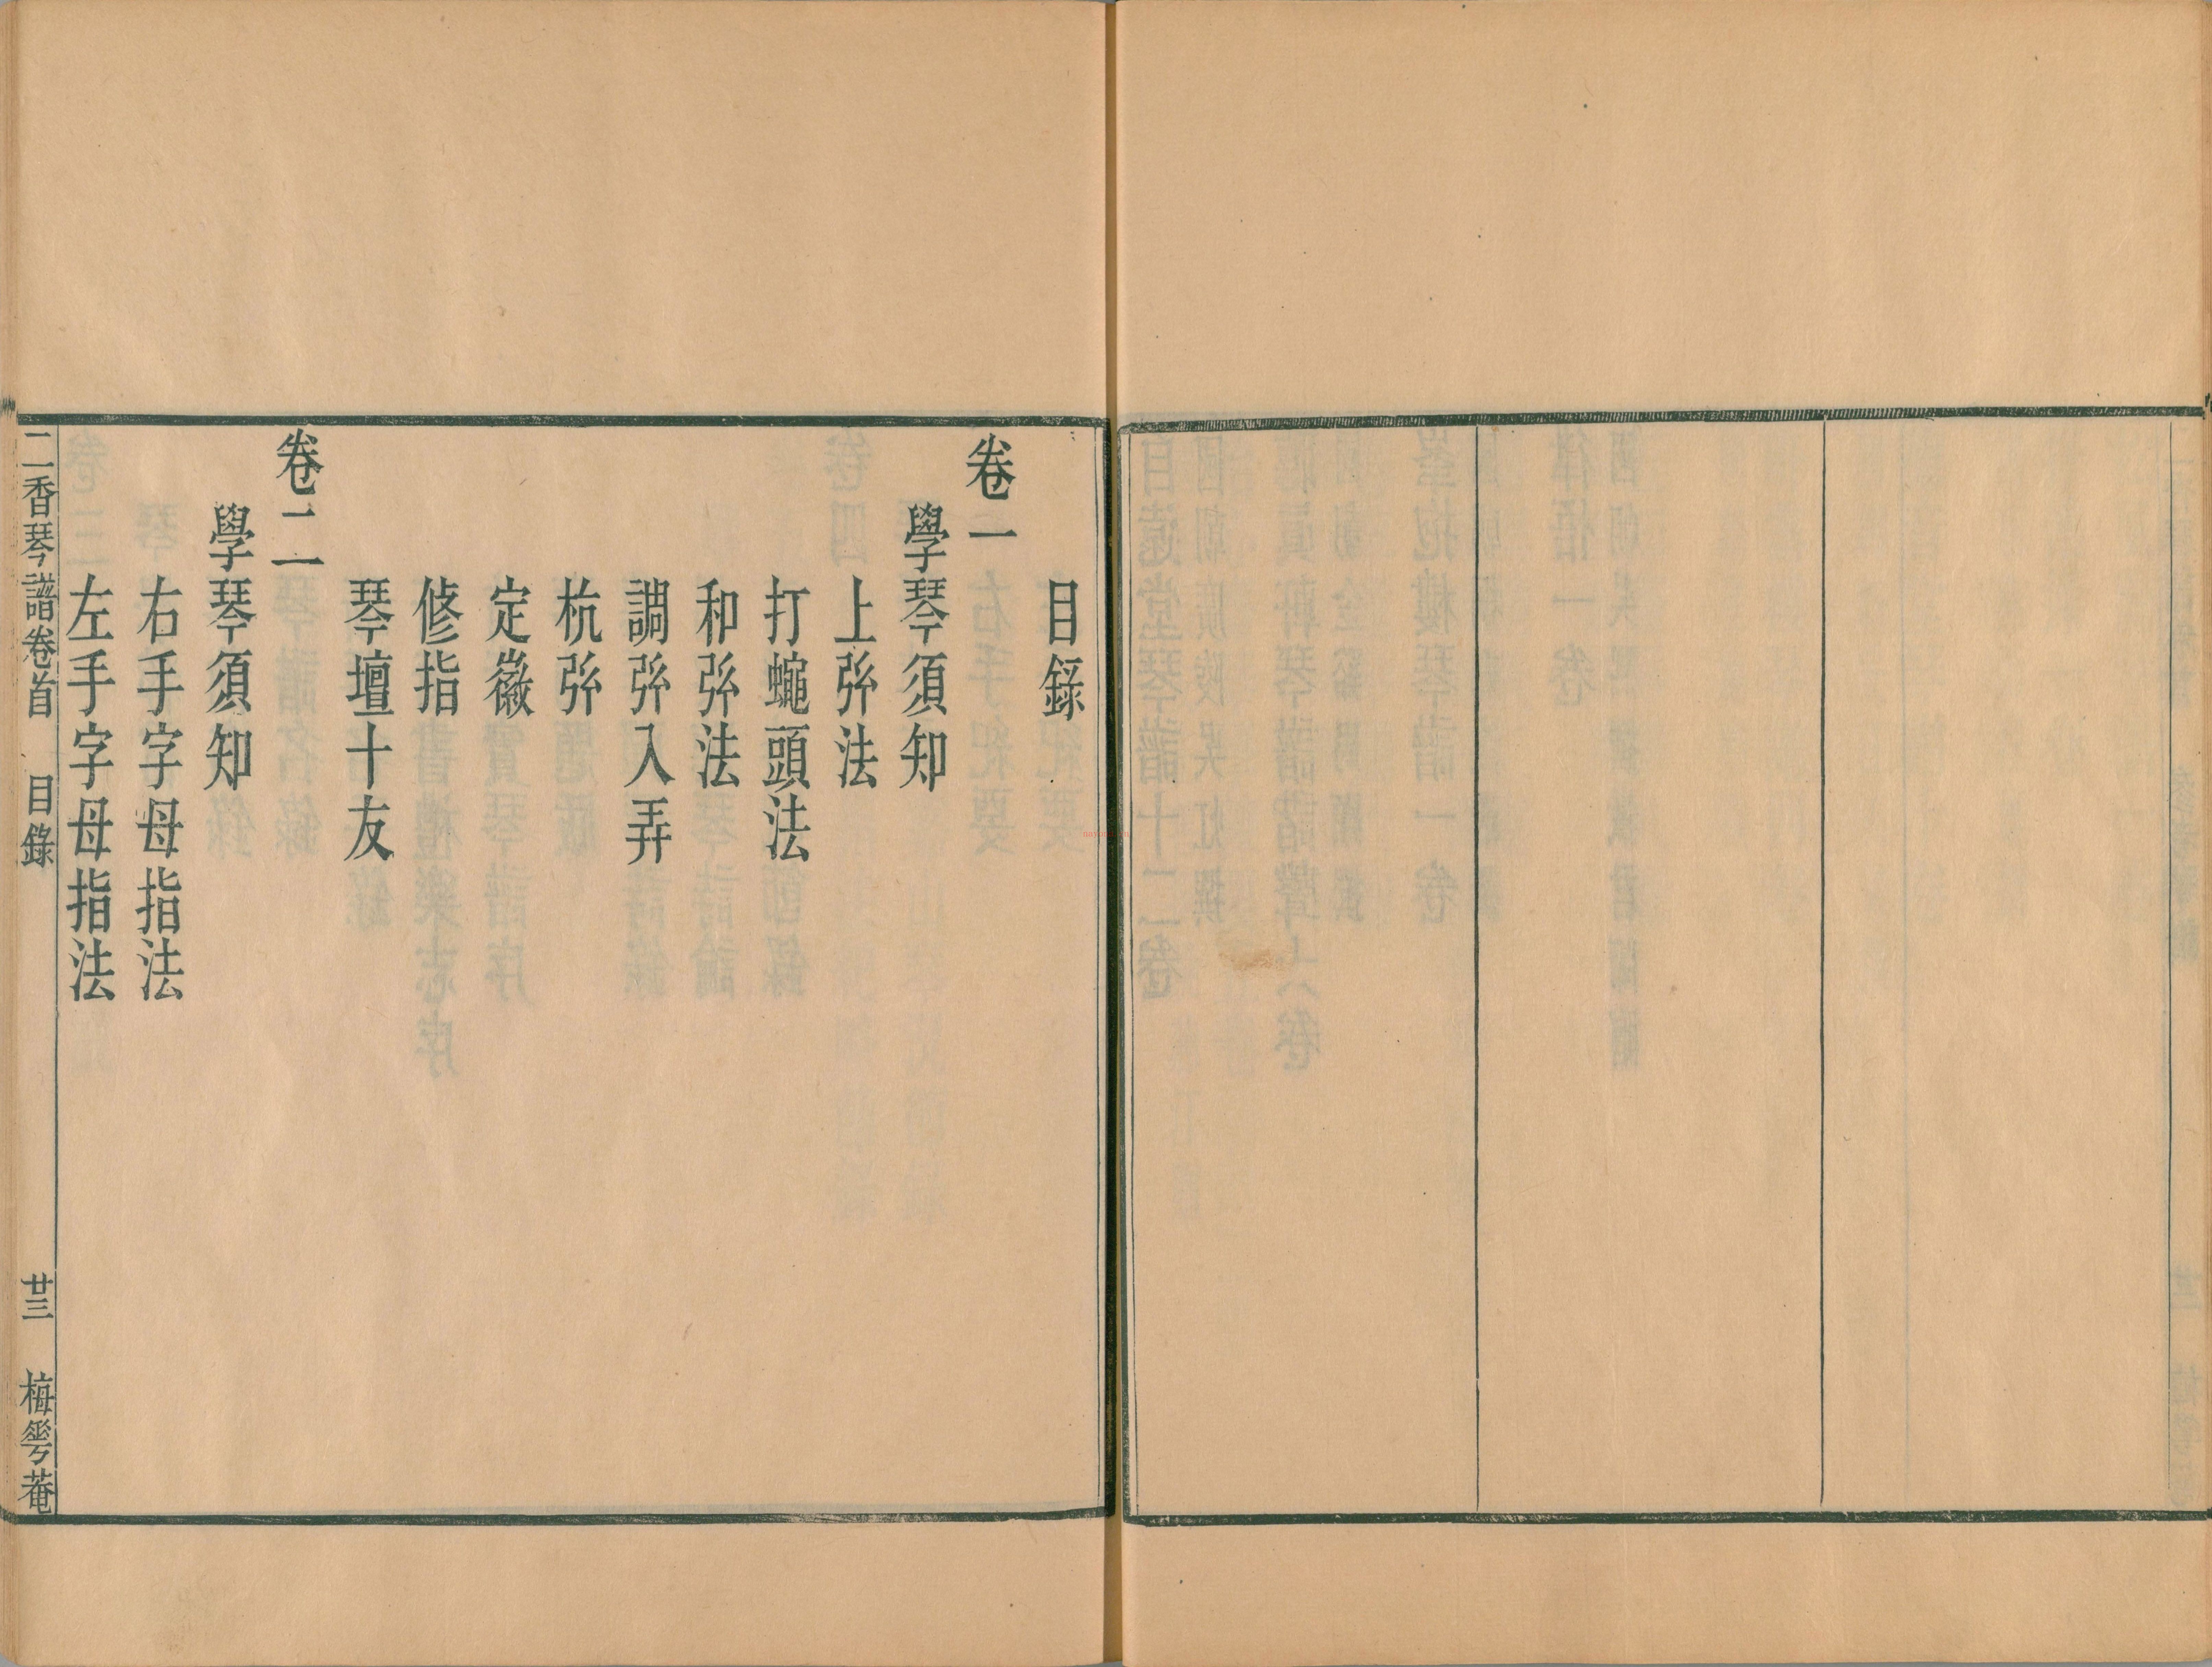 目錄
卷一
學琴須知
上弶法
打蠅頭法
和弶法
調弶入弄
杭弶
定徽
修指
琴壇十友
卷二
學琴須知
右手字母指法
左手字母指法
二香琴譜卷首 目錄 廿三 梅蕚菴